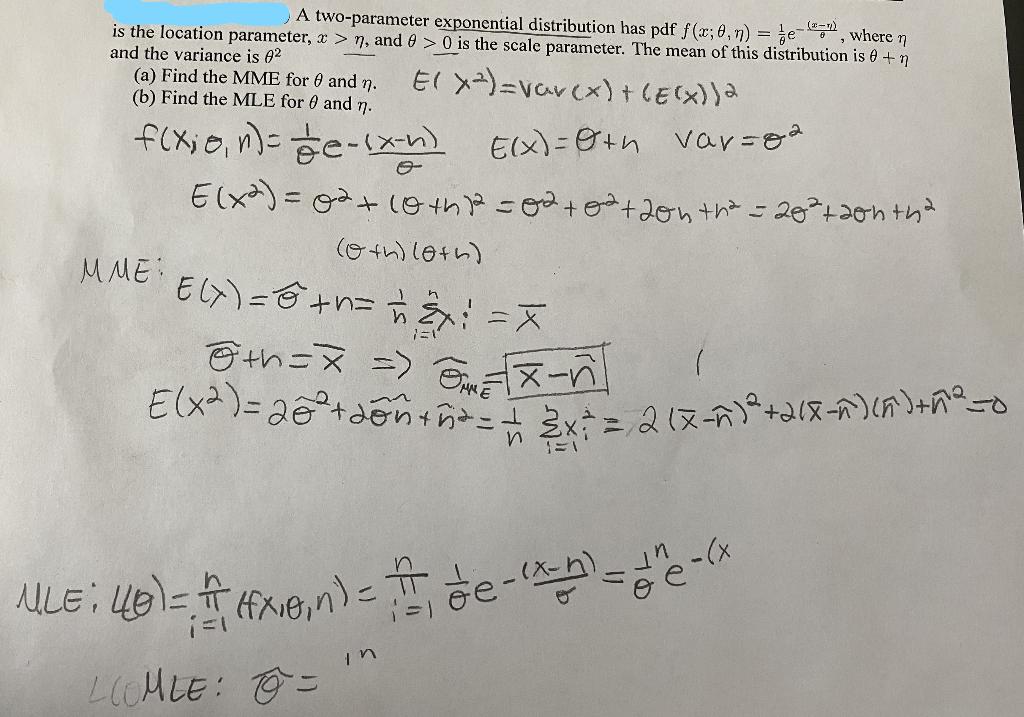 A two-parameter exponential distribution has pdf f(x; θ, η) = 1/θ e^{-(x-η)/θ}, where η
is the location parameter, x > η, and θ > 0 is the scale parameter. The mean of this distribution is θ + η
and the variance is θ²
(a) Find the MME for θ and η.
E(X²)=Var(x)+(E(x))²
(b) Find the MLE for θ and η.
f(x; θ, η) = 1/θ e -(x-η)/θ E(x)=θ+η Var=θ²
E(x²) = θ² + (θ+η)² = θ²+θ²+2θη+η² = 2θ²+2θη+η²
(θ+η)(θ+η)
MME:
E(x)=θ̂+η= 1/n Σ_{i=1}^{n} xi = x̄
θ̄+η=x̄ => θ̂_MME = x̄-η̂
E(x²)=2θ̂²+2θ̂η̂+η̂²= 1/n Σ_{i=1}^{n} xi² = 2(x̄-η̂)²+2(x̄-η̂)(η̂)+η̂²=0
MLE: L(θ)= Π_{i=1}^{n} (f(x,θ,η) = Π_{i=1}^{n} 1/θ e -(x-η)/θ = 1/θ^n e -(x
MLE: θ̂ = 1n